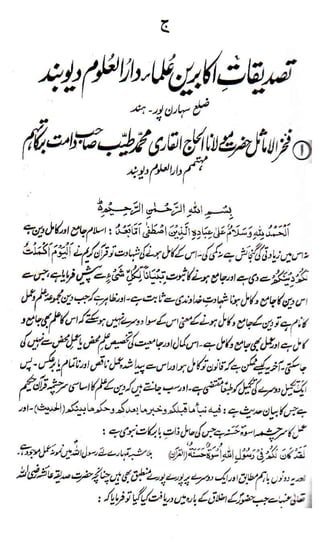 ج
تصدیقات اکابرین عُلماء دار العلوم دیوبند
ضلع سہارن پور۔ ہند
① فخر الاماثل حضرت مولانا الحاج القاری محمد طیب صاحب دامت برکاتہم
مہتمم دار العلوم دیوبند
بِسْمِ اللهِ الرَّحْمٰنِ الرَّحِيْمِ
اَلْحَمْدُ لِلّٰهِ وَسَلَامٌ عَلٰى عِبَادِهِ الَّذِيْنَ اصْطَفٰى اَمَّا بَعْدُ: اسلام جامع اور کامل دین ہے
نہ اس میں زیادتی کی گنجائش ہے نہ کمی کی۔ اس کے کامل ہونے کی شہادت تو قرآن کریم نے اَلْيَوْمَ اَكْمَلْتُ
لَكُمْ دِيْنَكُمْ سے دی ہے اور جامع ہونے کا ثبوت تِبْيَانًا لِّكُلِّ شَيْءٍ سے پیش فرمایا ہے جس سے
اس دین کا جامع و کامل ہونا شہادت خداوندی سے ثابت ہے۔ اور ظاہر ہے کہ جب دین مجموعہ علم و عمل
کا نام ہے تو دین کے جامع و کامل ہونے کے معنی اس کے سوا دوسرے نہیں ہو سکتے کہ اس کا علم بھی جامع و
کامل ہے اور عمل بھی جامع و کامل ہے۔ اس کمال اور جامعیت کی تخصیص علم محض یا عمل محض سے نہیں کی
جا سکتی۔ آخر یہ کیسے ممکن ہے کہ قانون تو کامل ہو اور اس سے پیدا شدہ عمل ناقص اور ناتمام یا بالعکس۔ پس
ایک کی تکمیل دوسرے کی تکمیل کو طبعاً مقتضی ہے۔ اور سب جانتے ہیں کہ دین کے علم کا اساسی سرچشمہ قرآن حکیم ہے
جس کا بیان حدیث ہے: فيه نبأ ما قبلكم وخبر ما بعدكم وحكم ما بينكم (الحدیث)۔ اور
عمل کا سرچشمہ اسوۂ حسنہ ہے جس کی حامل ذات بابرکات نبوی ہے:
لَقَدْ كَانَ لَكُمْ فِيْ رَسُوْلِ اللهِ اُسْوَةٌ حَسَنَةٌ (القرآن) بلاشبہ تمہارے لئے رسول اللہ میں نمونۂ عمل موجود ہے۔
اور یہ دونوں باہم مطابق اور ایک دوسرے پر پورے پورے منطبق بھی ہیں چنانچہ حضرت صدیقہ عائشہ رضی اللہ
تعالیٰ عنہا سے جب حضورؐ کے اخلاق کے بارہ میں دریافت کیا گیا تو فرمایا کہ: